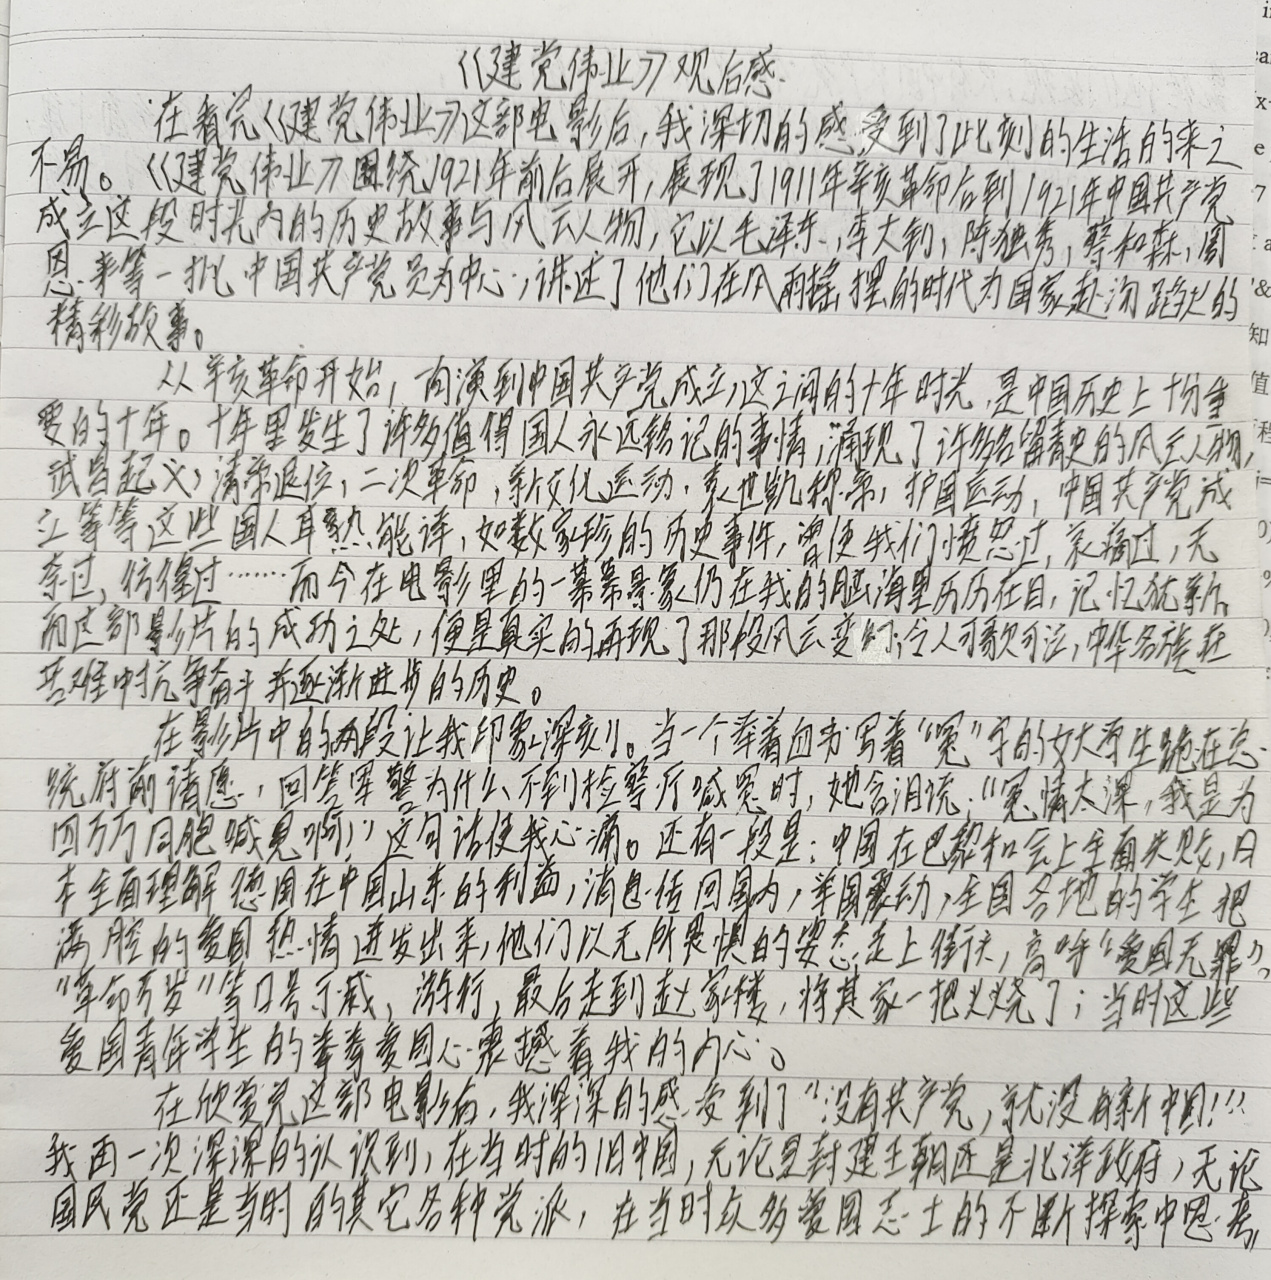 《建党伟业》观后感.
在看完《建党伟业》这部电影后,我深切的感受到了此刻的生活的来之
不易。《建党伟业》围绕1921年前后展开,展现了1911年辛亥革命后到1921年中国共产党
成立这段时光内的历史故事与风云人物,它以毛泽东,李大钊,陈独秀,蔡和森,周
恩来等一批中国共产党员为中心,讲述了他们在风雨摇摆的时代为国家赴汤蹈火的
精彩故事。
从辛亥革命开始,而演到中国共产党成立,这之间的十年时光,是中国历史上十分重
要的十年。十年里发生了许多值得国人永远铭记的事情,涌现了许多名留青史的风云人物,
武昌起义,清帝退位,二次革命,新文化运动,袁世凯称帝,护国运动,中国共产党成
立等等这些国人耳熟能详,如数家珍的历史事件,曾使我们愤怒过,哀痛过,无
奈过,彷徨过……而今在电影里的一幕幕景象仍在我的脑海里历历在目,记忆犹新。
而这部影片的成功之处,便是真实的再现了那段风云变幻,令人可歌可泣,中华各族在
苦难中抗争奋斗并逐渐进步的历史。
在影片中的两段让我印象深刻。当一个举着血书写着“冤”字的女大学生跪在总
统府前请愿,回答军警为什么不到检察厅喊冤时,她含泪说:“冤情太深,我是为
四万万同胞喊冤啊!”这句话使我心痛。还有一段是:中国在巴黎和会上全面失败,日
本全面理解德国在中国山东的利益,消息传回国内,举国震动,全国各地的学生把
满腔的爱国热情迸发出来,他们以无所畏惧的姿态走上街头,高呼“爱国无罪”。
“革命万岁”等口号示威,游行,最后走到赵家楼,将其家一把火烧了;当时这些
爱国青年学生的拳拳爱国心震撼着我的内心。
在欣赏完这部电影后,我深深的感受到了“没有共产党,就没有新中国!”
我再一次深深的认识到,在当时的旧中国,无论是封建王朝还是北洋政府,无论
国民党还是当时的其它各种党派,在当时众多爱国志士的不断探索中